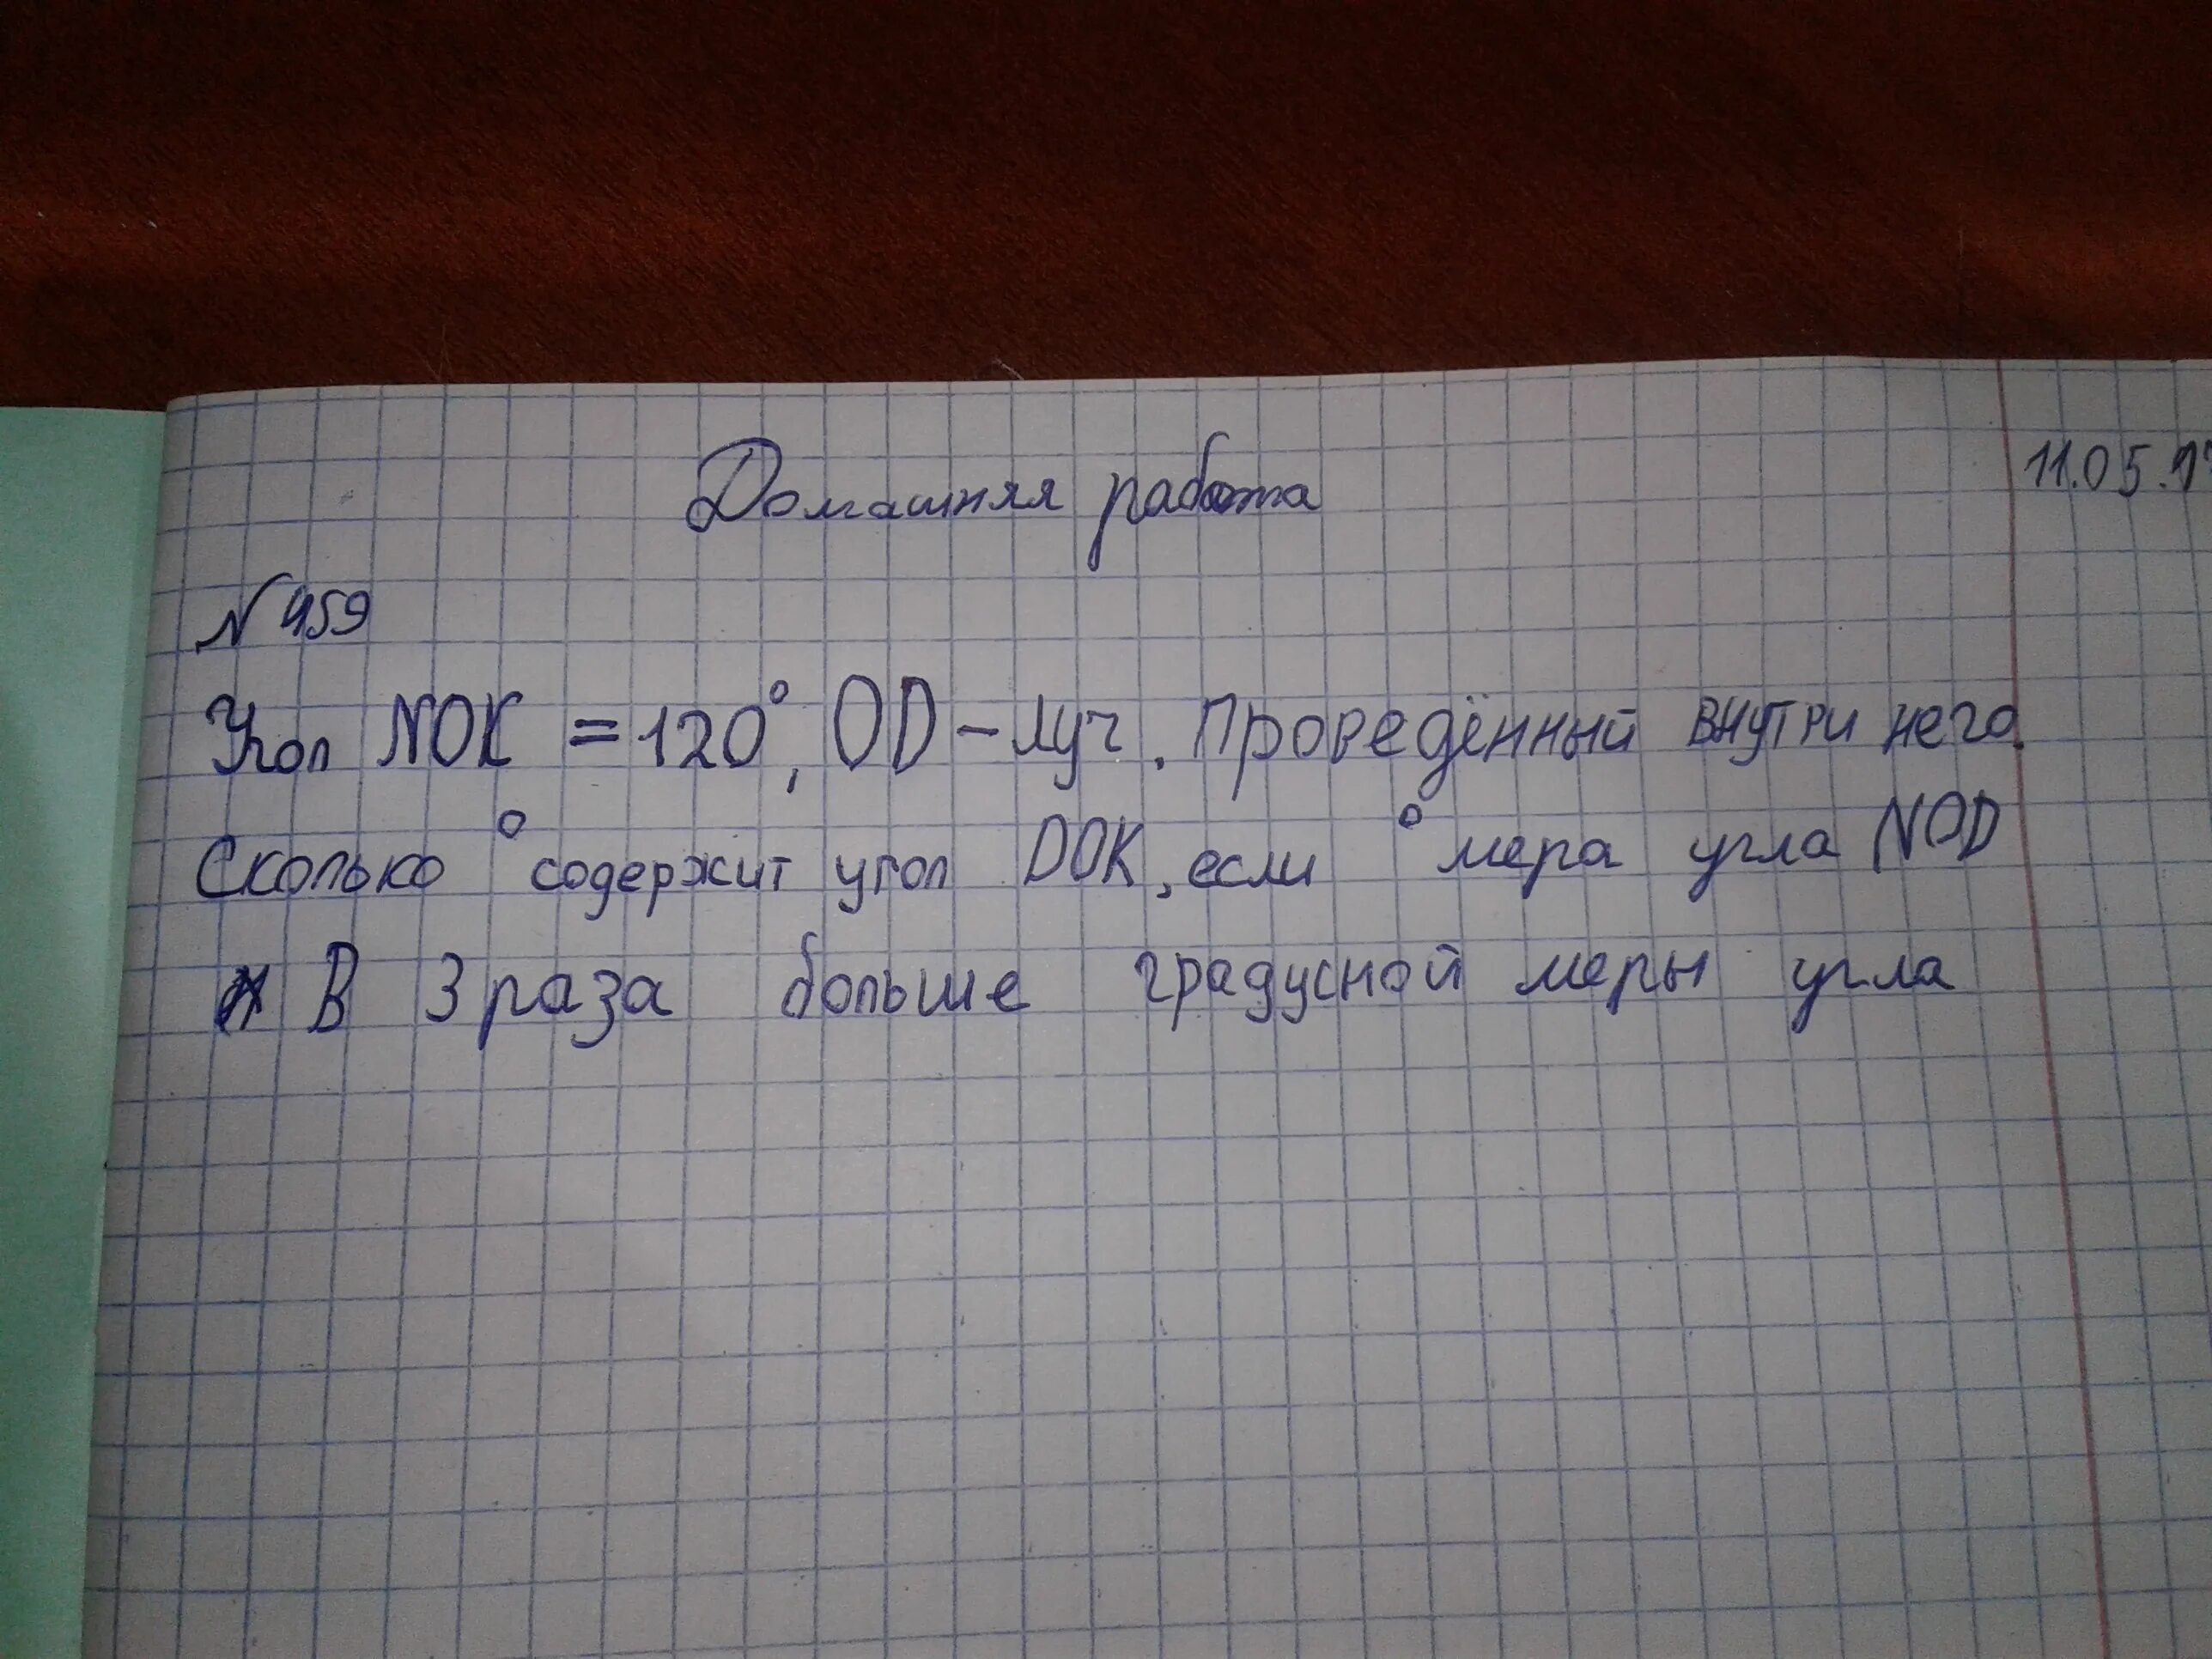 Домашняя работа
11.05.17
№459
Угол NOK = 120°, OD – луч, проведённый внутри него.
Сколько ° содержит угол DOK, если ° мера угла NOD
В 3 раза больше градусной меры угла